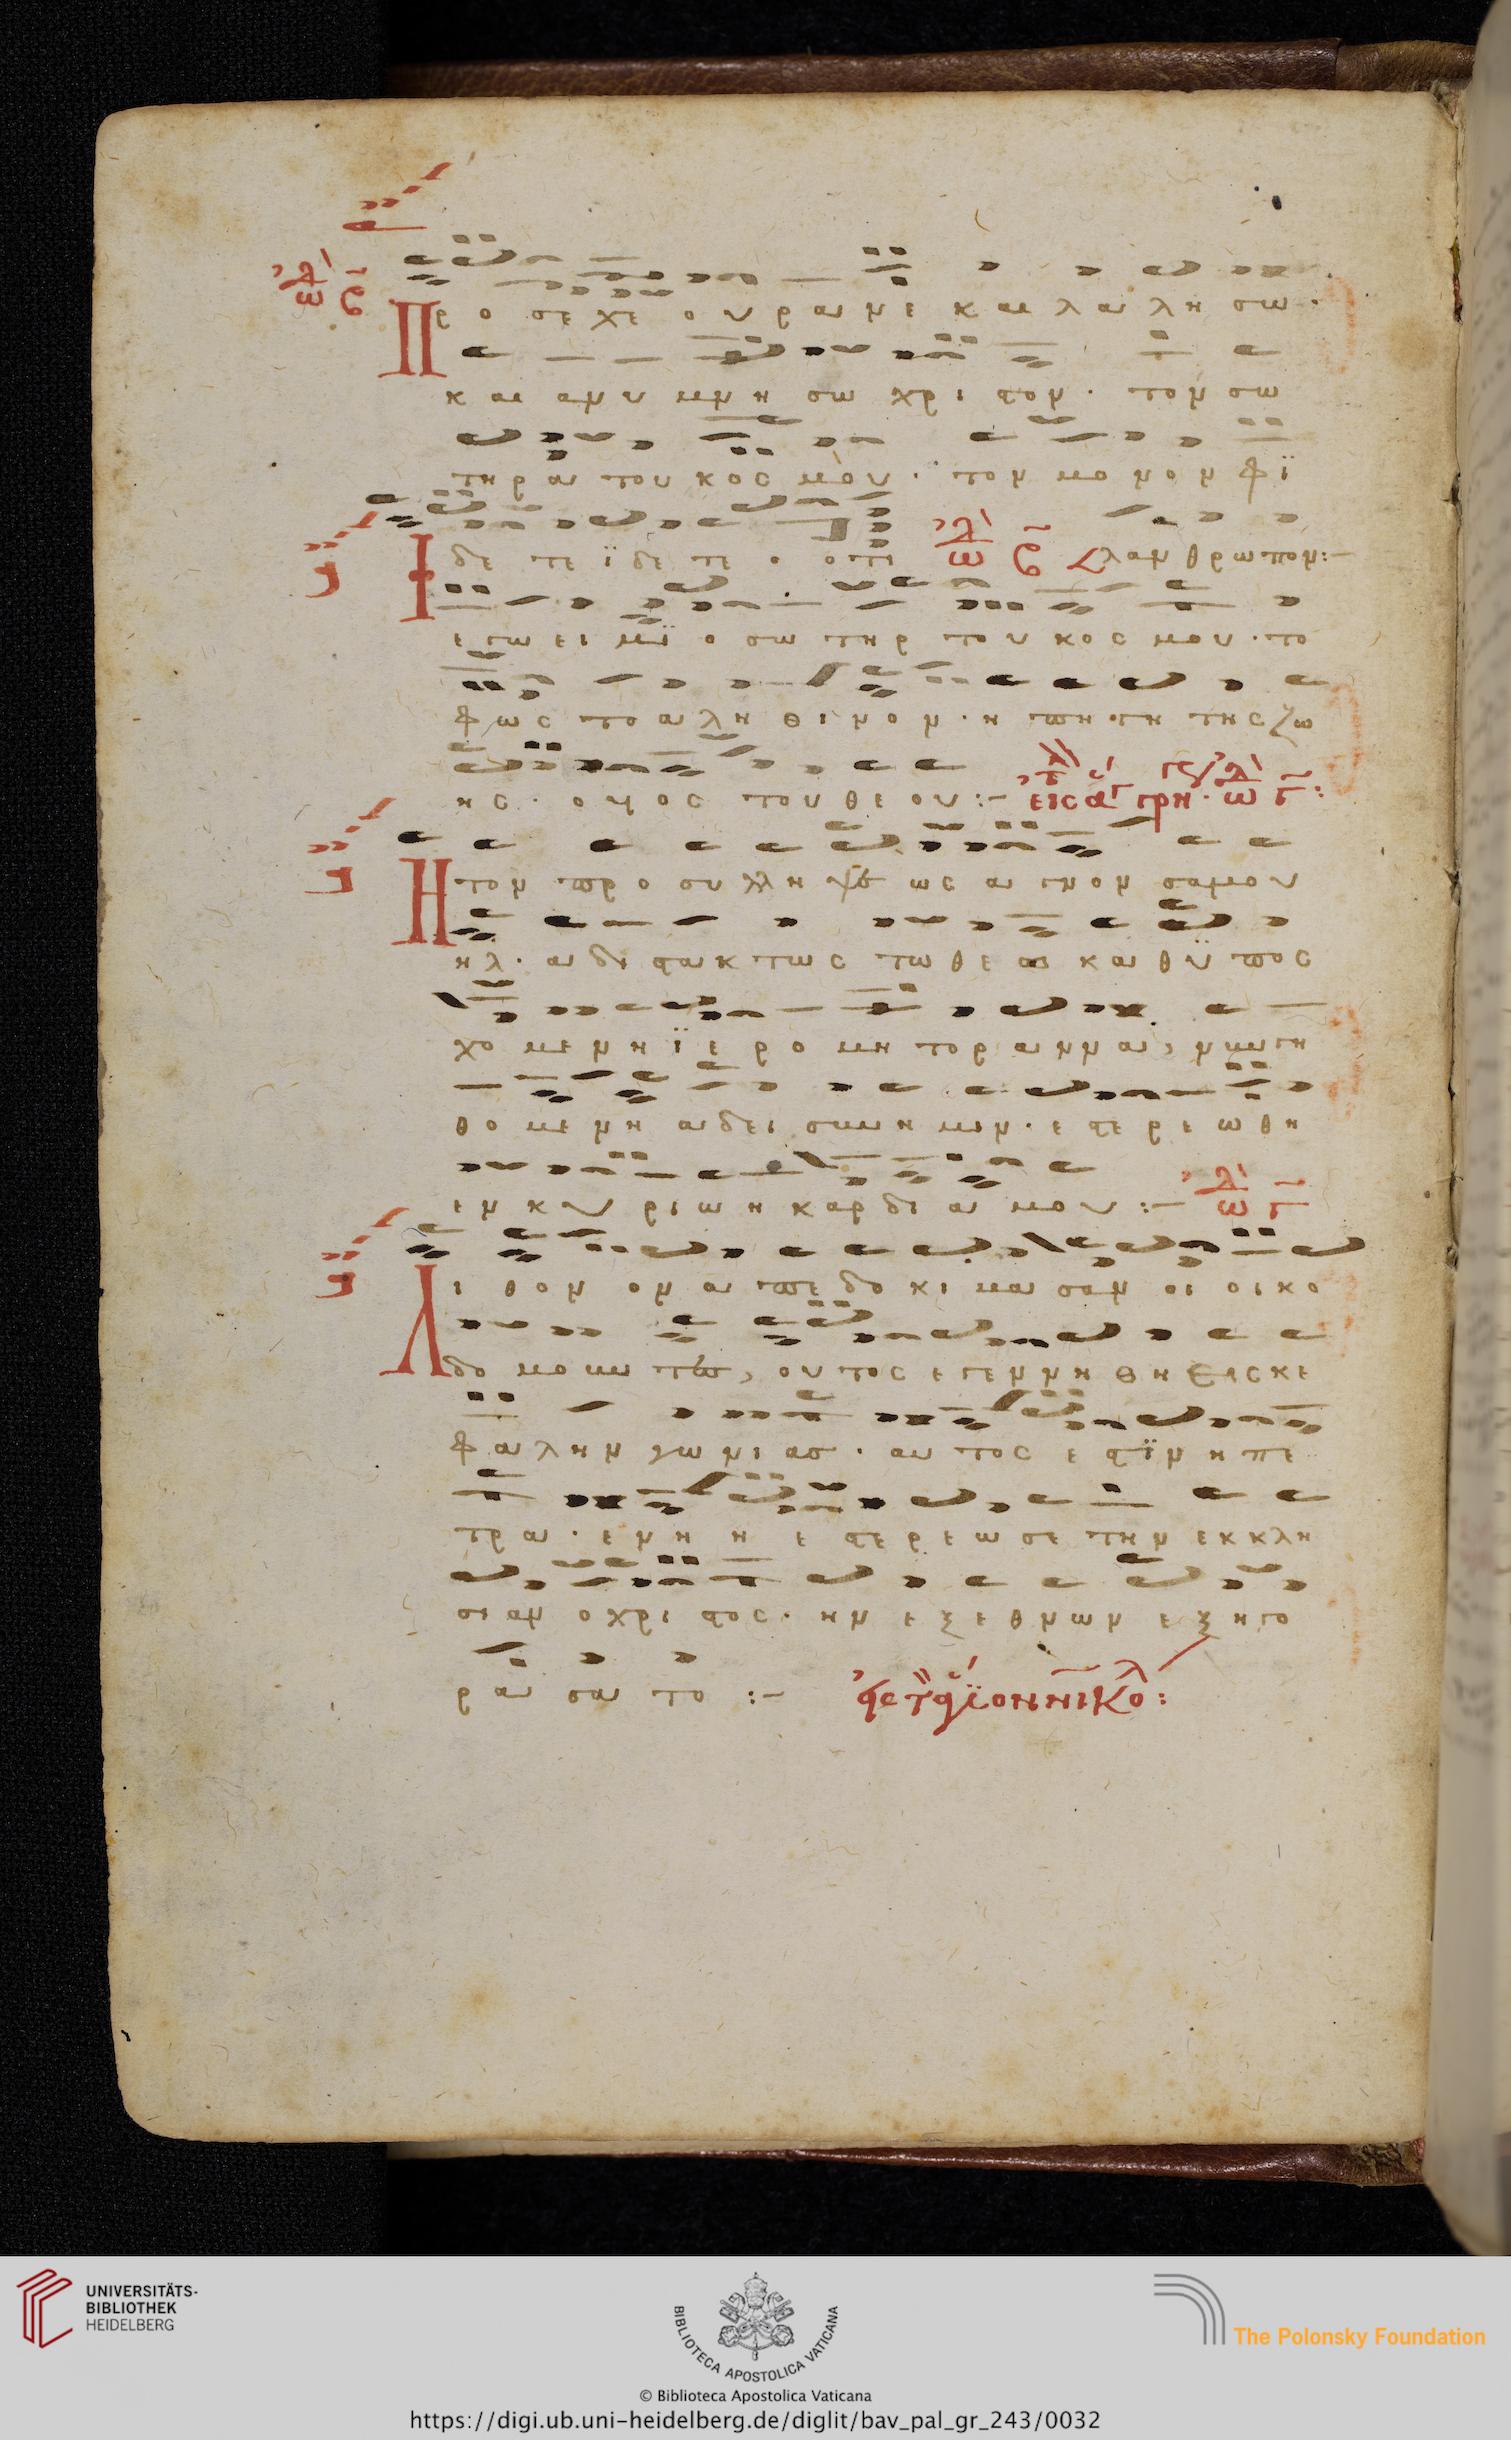 ᾠδ β
Προσεχε ουρανε και λαλησω·
και ανυμνησω χριστον· τον σω
τηρα του κοσμου· τον μονον φϊ
Ιδετε ϊδετε · οτι ᾠδ β λανθρωπον:–
εγω ειμϊ ο σωτηρ του κοσμου· το
φως το αληθινον· η πηγη της ζω
ης· ο υιος του θεου:–
Η τον προσυλληψεως αγνον σαμου
ηλ· αδιδακτως τω θεω καθϋπος
χομενη ϊερομητορ αννα,
θομενη αδει συν ημιν· εστερεωθη
εν κυριω η καρδια μου:– ᾠδ γ
Λιθον ον απεδοκιμασαν οι οικο
δομουντες, ουτος εγεννηθη εις κε
φαλην γωνιας· αυτος εστϊν η πε
τρα· εν η εστερεωσε την εκκλη
σιαν ο χριστος· ην εξ εθνων εξηγο
ρασατο:–
UNIVERSITÄTS-
BIBLIOTHEK
HEIDELBERG
BIBLIOTECA APOSTOLICA VATICANA
The Polonsky Foundation
© Biblioteca Apostolica Vaticana
https://digi.ub.uni-heidelberg.de/diglit/bav_pal_gr_243/0032